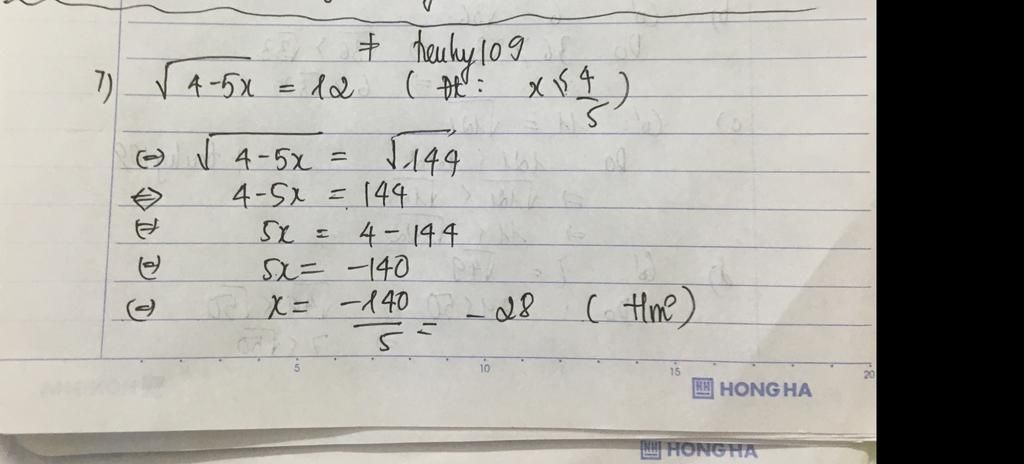 # heuhy109
7) √4-5x = 12 ( đk: x ≤ 4/5 )
(=) √4-5x = √144
⇔ 4-5x = 144
(=) 5x = 4-144
(=) 5x = -140
(=) x = -140/5 = -28 ( tm )
5 10 15 20
HH HONG HA
HH HONG HA